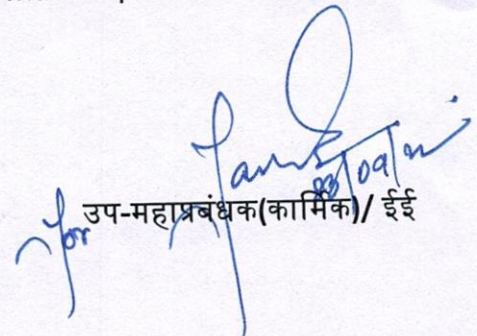 23/09/
for उप-महाप्रबंधक(कार्मिक)/ ईई